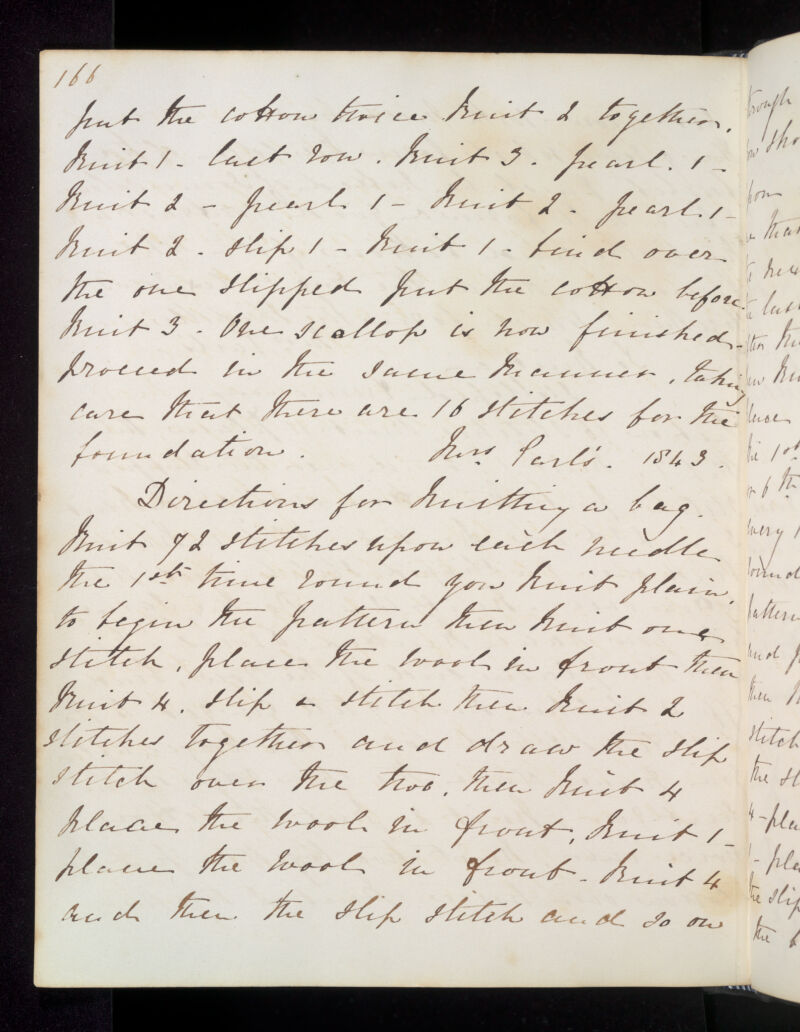 166
put the cotton twice Knit 2 together.
Knit 1 - last row. Knit 3. pearl. 1 -
Knit 2 - pearl 1 - Knit 2. pearl. 1 -
Knit 2 - slip 1 - Knit 1 - bind over
the one slipped put the cotton before
Knit 3 - One scallop is now finished -
proceed in the same manner, taking
care that there are 16 stitches for the
foundation. Mrs. 1843.
Directions for Knitting a bag.
Knit 72 stitches upon each needle
the 1st time round you Knit plain,
to begin the pattern then Knit one
stitch, place the wool in front then
Knit 4. slip a stitch then Knit 2
stitches together and draw the slip
stitch over the two, then Knit 4
place the wool in front, Knit 1 -
place the wool in front - Knit 4
and then the slip stitch and so on